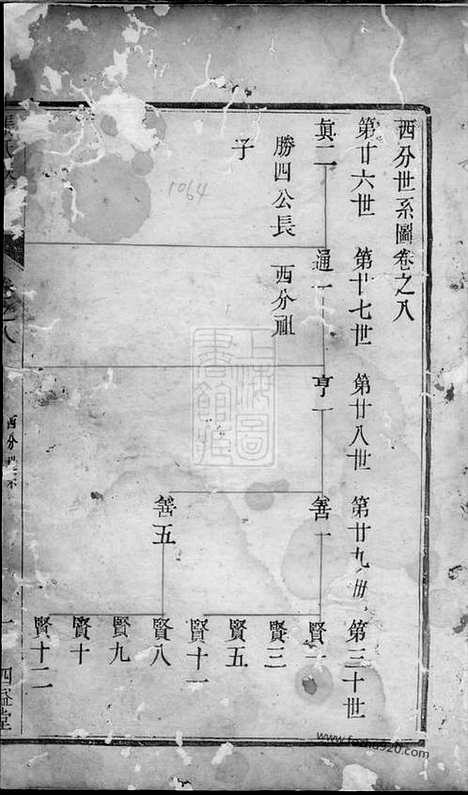 西分世系圖卷之八
第廿六世
第廿七世
第廿八世
第廿九世
第三十世
真二
勝四公長子
通一
西分祖
亨一
善一
善五
賢一
賢三
賢五
賢十一
賢八
賢九
賢十
賢十二
上海圖書館藏
1064
西分世系
一
四益堂
www.fozhu920.com